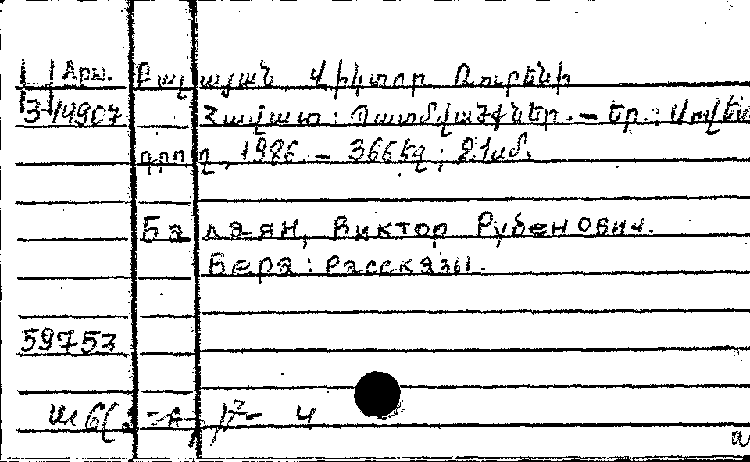 Արմ. Բալայան Վիկտոր Ռուբենի
3-14907 Հավատ: Պատմվածքներ. — Եր.: Սովետ
գրող, 1986. — 366 էջ; 21 սմ.
Балаян, Виктор Рубенович.
Вера: Рассказы.
59753